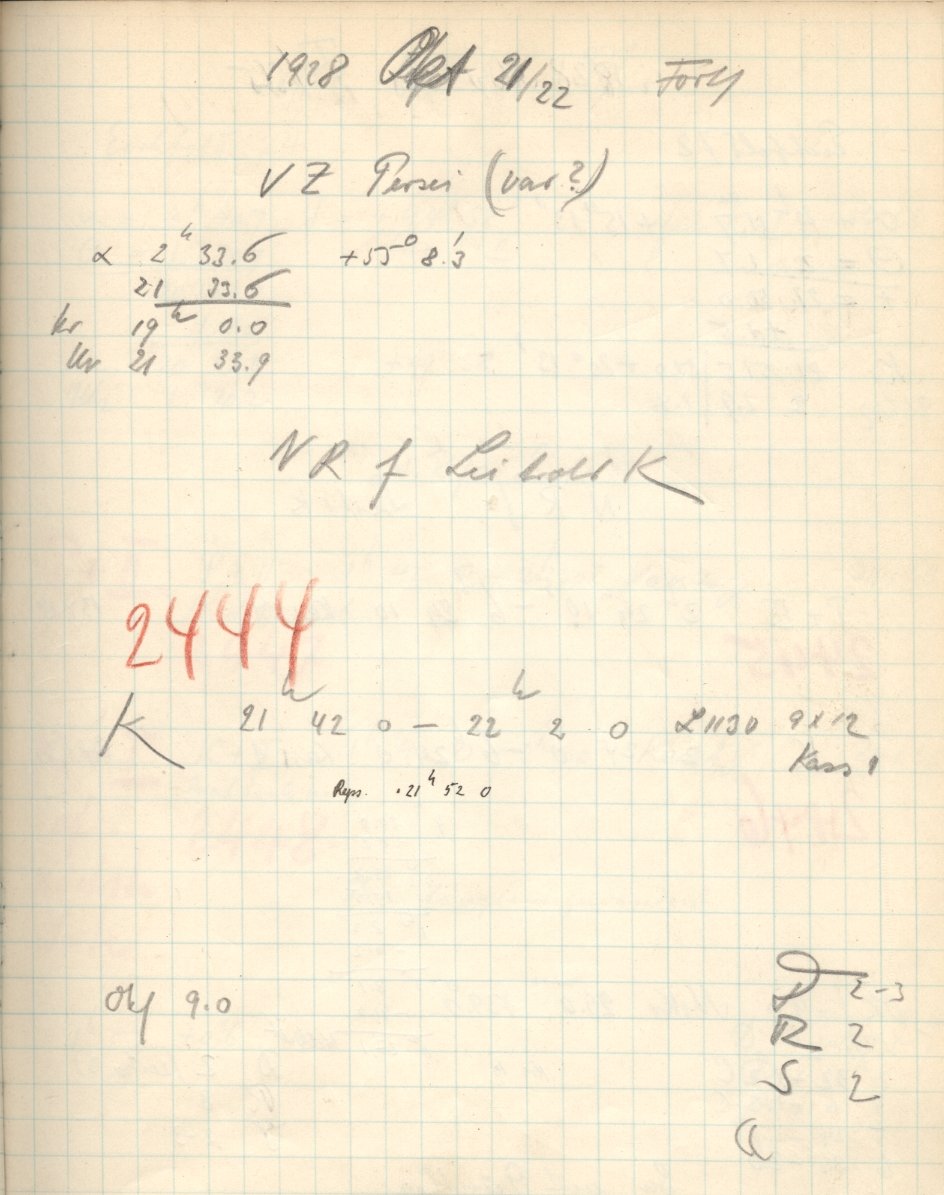 1928 Okt 21/22 Forts
VZ Persei (var?)
α 2ʰ 33.6 +55° 8.'3
21 33.6
kr 19ʰ 0.0
Ur 21 33.9
N R f K
2444
K 21ʰ 42 0 — 22ʰ 2 0 L1130 9x12
Kass 1
Reps. 21ʰ 52 0
Okf 9.0
D 2-3
R 2
S 2